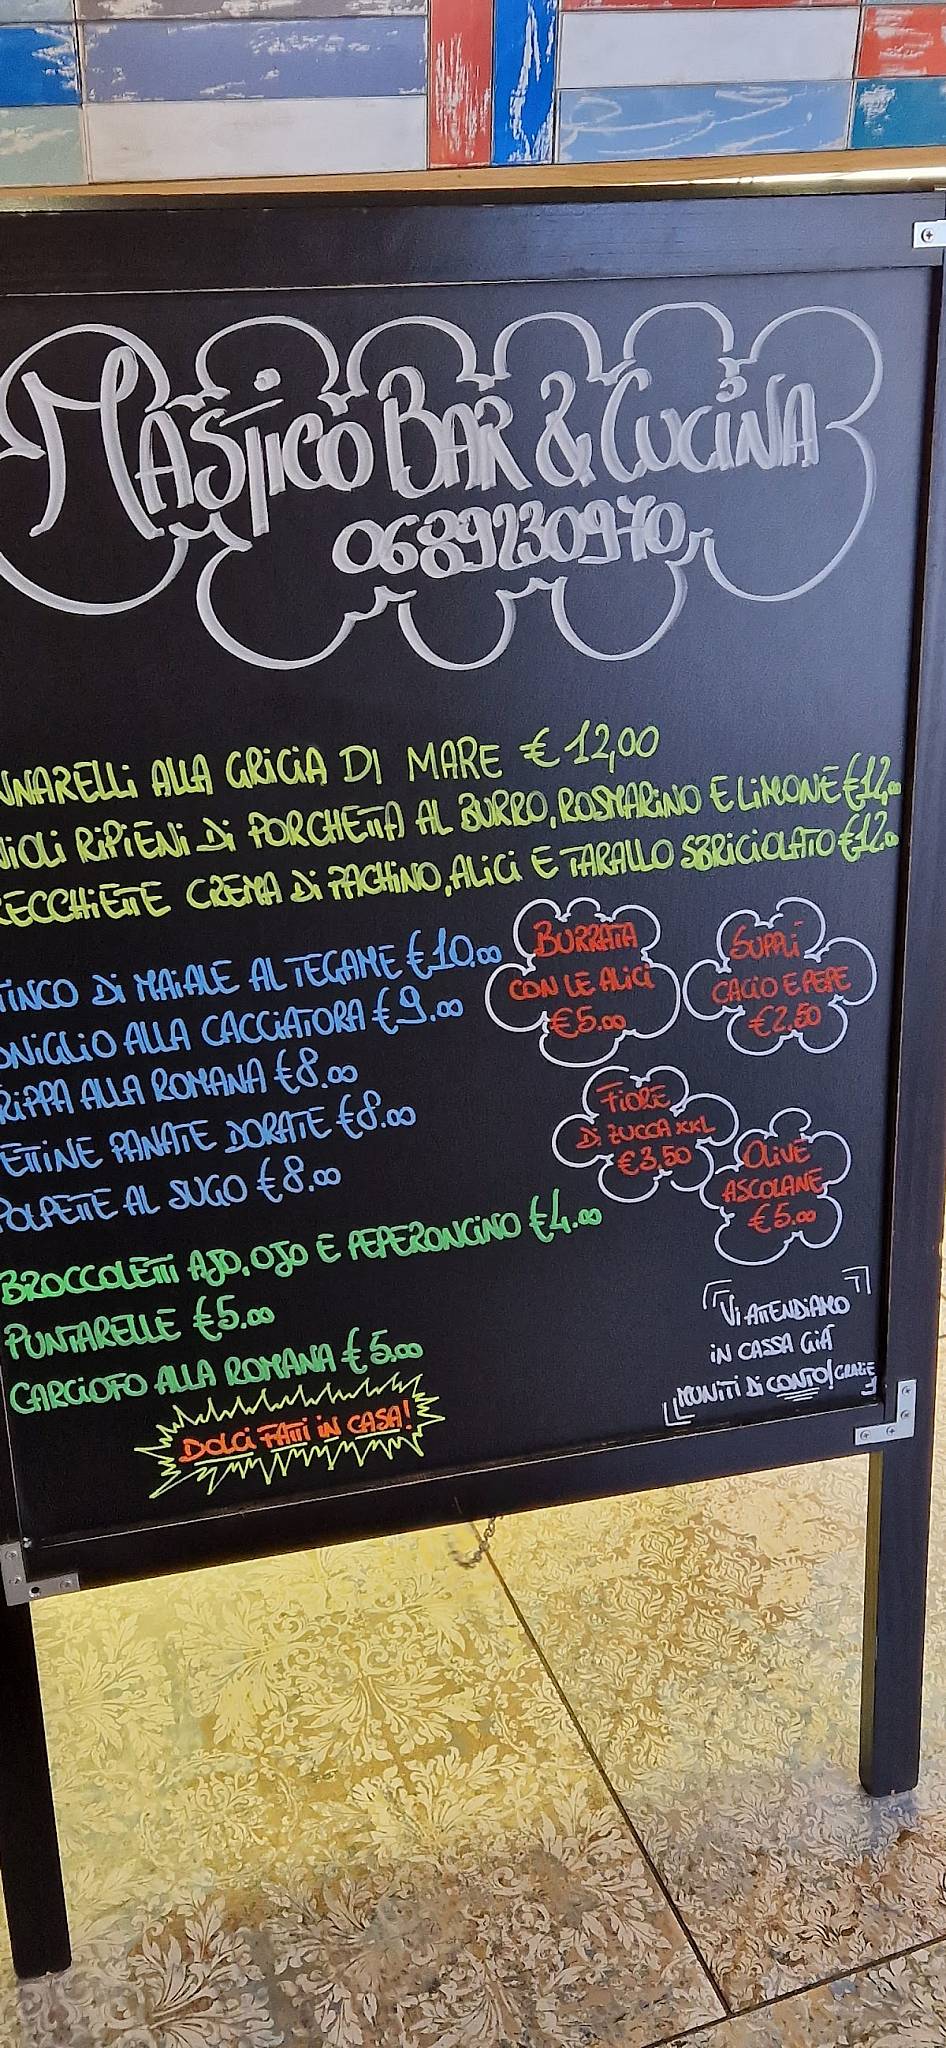 MASTICO BAR & CUCINA
0689230970
NNARELLI ALLA GRICIA DI MARE € 12,00
VIOLI RIPIENI DI PORCHETTA AL BURRO, ROSMARINO E LIMONE €12,00
RECCHIETTE CREMA DI PACHINO, ALICI E TARALLO SBRICIOLATO €12.00
TINCO DI MAIALE AL TEGAME €10.00
ONIGLIO ALLA CACCIATORA €9.00
RIPPA ALLA ROMANA €8.00
ETTINE PANATE DORATE €8.00
POLPETTE AL SUGO €8.00
BURRATA
CON LE ALICI
€5.00
SUPPLÌ
CACIO E PEPE
€2.50
FIORE
DI ZUCCA XXL
€3,50
OLIVE
ASCOLANE
€5.00
BROCCOLETTI AJO, OJO E PEPERONCINO €4.00
PUNTARELLE €5.00
CARCIOFO ALLA ROMANA €5.00
DOLCI FATTI IN CASA!
VI ATTENDIAMO
IN CASSA GIÀ
MUNITI DI CONTO! GRAZIE